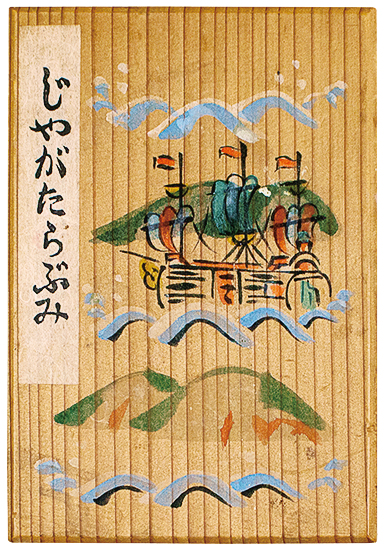 じやがたらぶみ